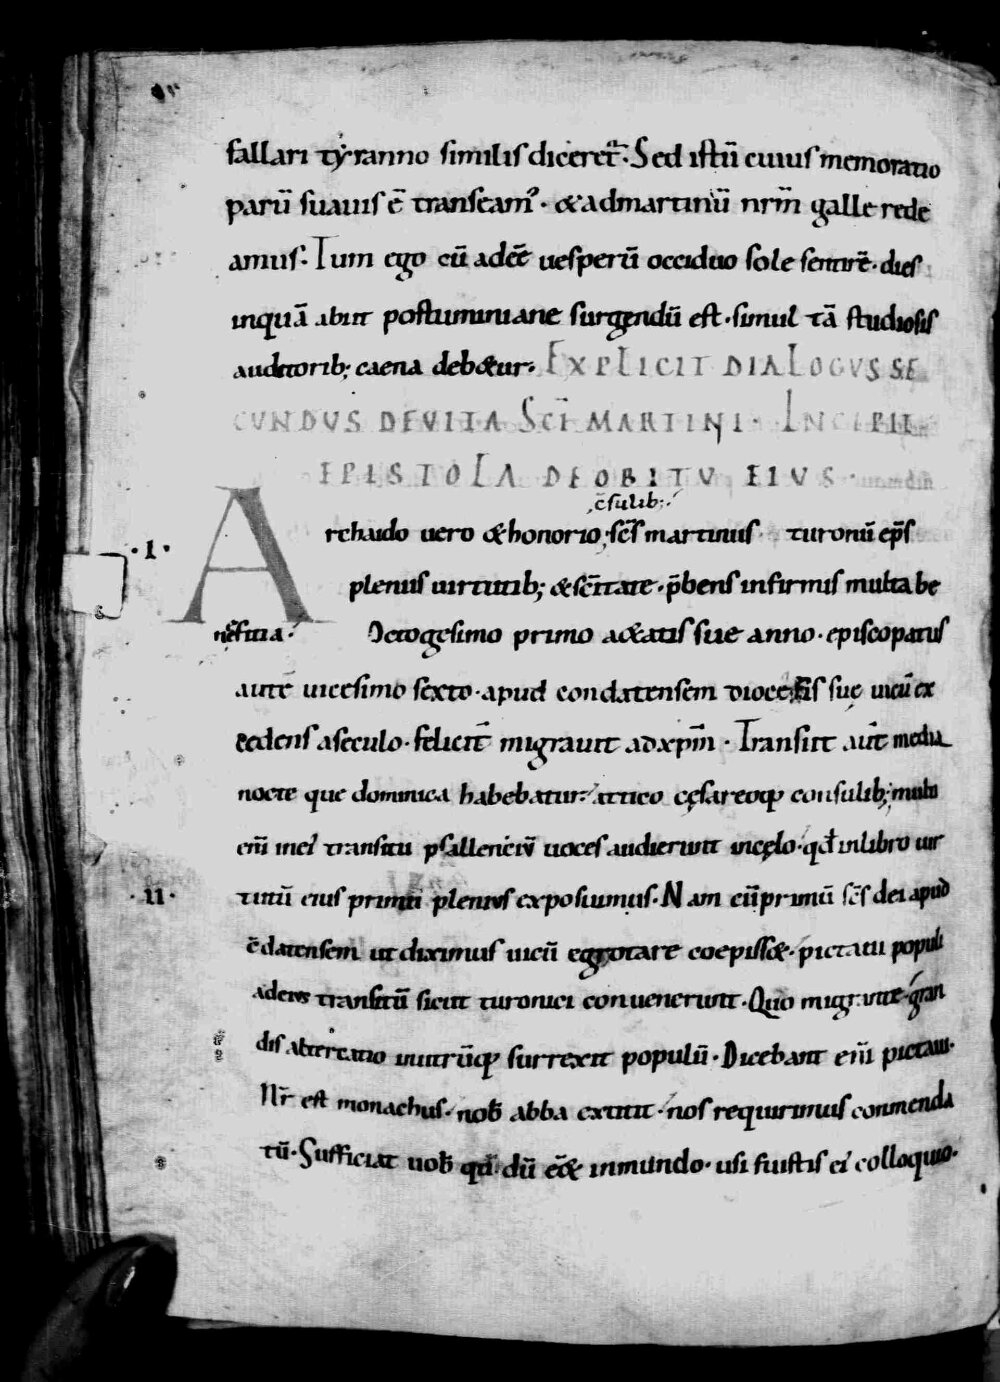 fallari tyranno similis diceret̄. Sed istū cuius memoratio
parū suauis ē transeam᾽. & ad martinū nr̄m galle rede
amus. Tum ego cū adeē uesperū occiduo sole sentirē. dies
inquā abiit postumiane surgendū est. simul tā studiosis
auditorib; caena deb&ur. EXPLICIT DIALOGUS SE
CUNDUS DE VITA SCI MARTINI. INCIPIT
EPISTOLA DE OBITU EIUS.
c̄sulib;
.I.
Archadio uero & honorio, sc̄s martinus turonū ep̄s
plenus uirtutib; & sc̄itate. p̄bens infirmis multa be
neficia. Octogesimo primo a&atis sue anno. episcopatus
autē uicesimo sexto. apud condatensem diocesis suę uicū ex
cedens a seculo. felicit̄ migrauit ad xp̄m. Transiit aut̄ media
nocte que dominica habebatur. attico cęsareoq; consulib; multi
eni̅ in ei᾽ transitu psallenciū uoces audierunt in cęlo. qd̄ in libro uir
.II.
tutū eius primū plenius exposuimus. Nam cū primū sc̄s dei apud
c̄datensem ut diximus uicū egrotare coepiss&. pictaui populi
ad eius transitū sicut turonici conuenerunt. Quo migrante. gran
dis altercatio in utrūq; surrexit populū. Dicebant eni̅ pictaui.
Nr̄ est monachus. nob̄ abba extitit. nos requirimus conmenda
tū. Sufficiat uob̄ qd̄ dū ēe& in mundo. usi fuistis ei᾽ colloquio.